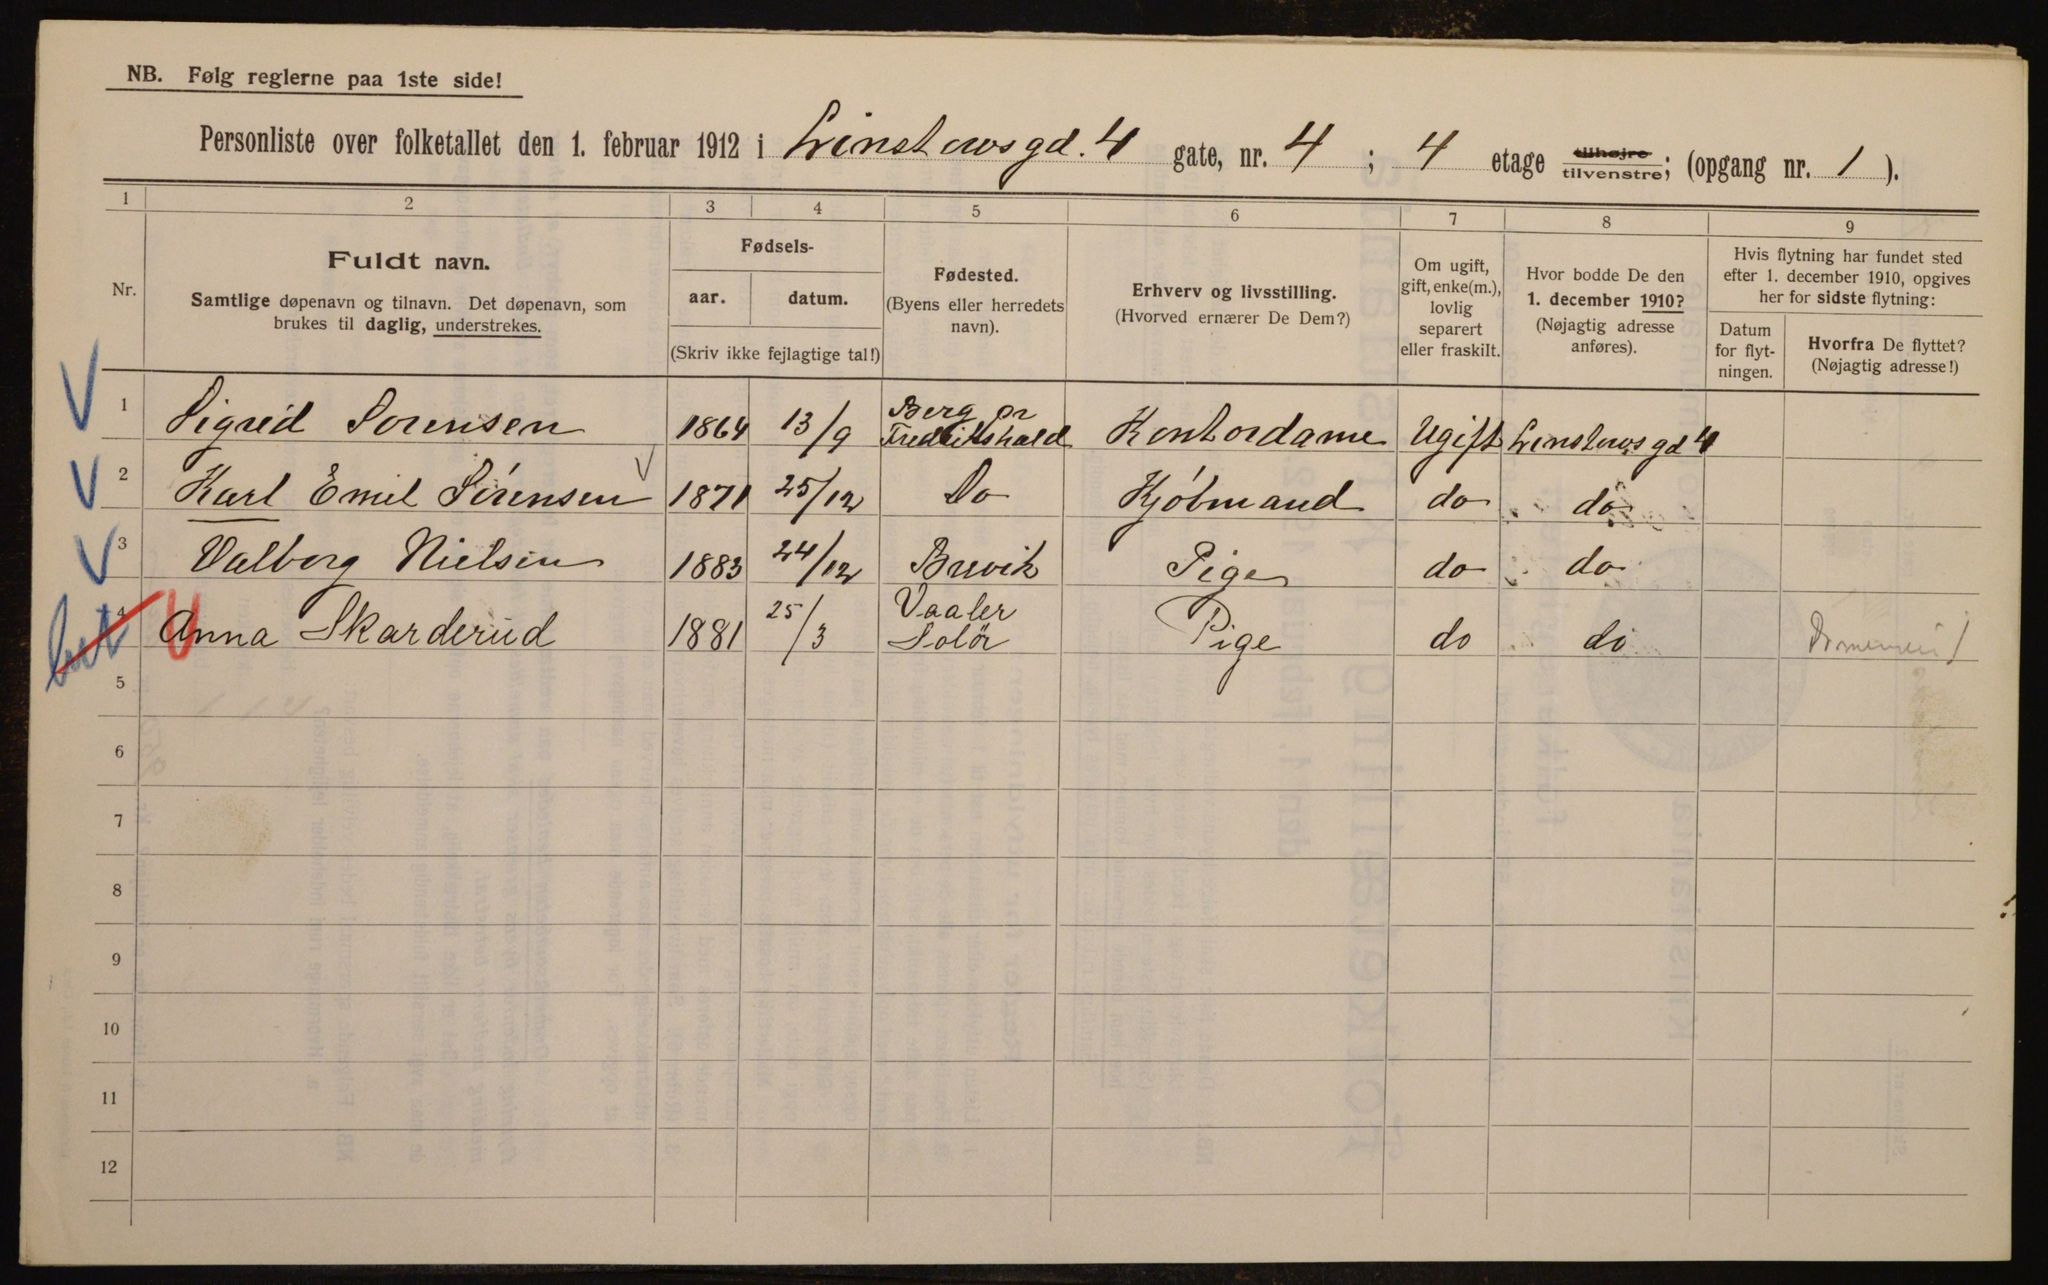 NB. Følg reglerne paa 1ste side!
Personliste over folketallet den 1. februar 1912 i Linstowsgd. 4 gate, nr. 4 ; 4 etage tilhøjre tilvenstre; (opgang nr. 1 ).
1 2 3 4 5 6 7 8 9
Nr.
Fuldt navn.
Samtlige døpenavn og tilnavn. Det døpenavn, som
brukes til daglig, understrekes.
Fødsels-
aar. datum.
(Skriv ikke fejlagtige tal!)
Fødested.
(Byens eller herredets
navn).
Erhverv og livsstilling.
(Hvorved ernærer De Dem?)
Om ugift,
gift, enke(m.),
lovlig
separert
eller fraskilt.
Hvor bodde De den
1. december 1910?
(Nøjagtig adresse
anføres).
Hvis flytning har fundet sted
efter 1. december 1910, opgives
her for sidste flytning:
Datum
for flyt-
ningen.
Hvorfra De flyttet?
(Nøjagtig adresse!)
1 Sigrid Sorensen 1864 13/9 Berg pr Fredrikshald Kontordame Ugift Linstowsgd 4
2 Karl Emil Sörensen 1871 25/12 Do Kjöbmand do do
3 Valborg Nielsen 1883 24/12 Brevik Pige do do
4 Anna Skarderud 1881 25/3 Vaaler Solör Pige do do
5
6
7
8
9
10
11
12